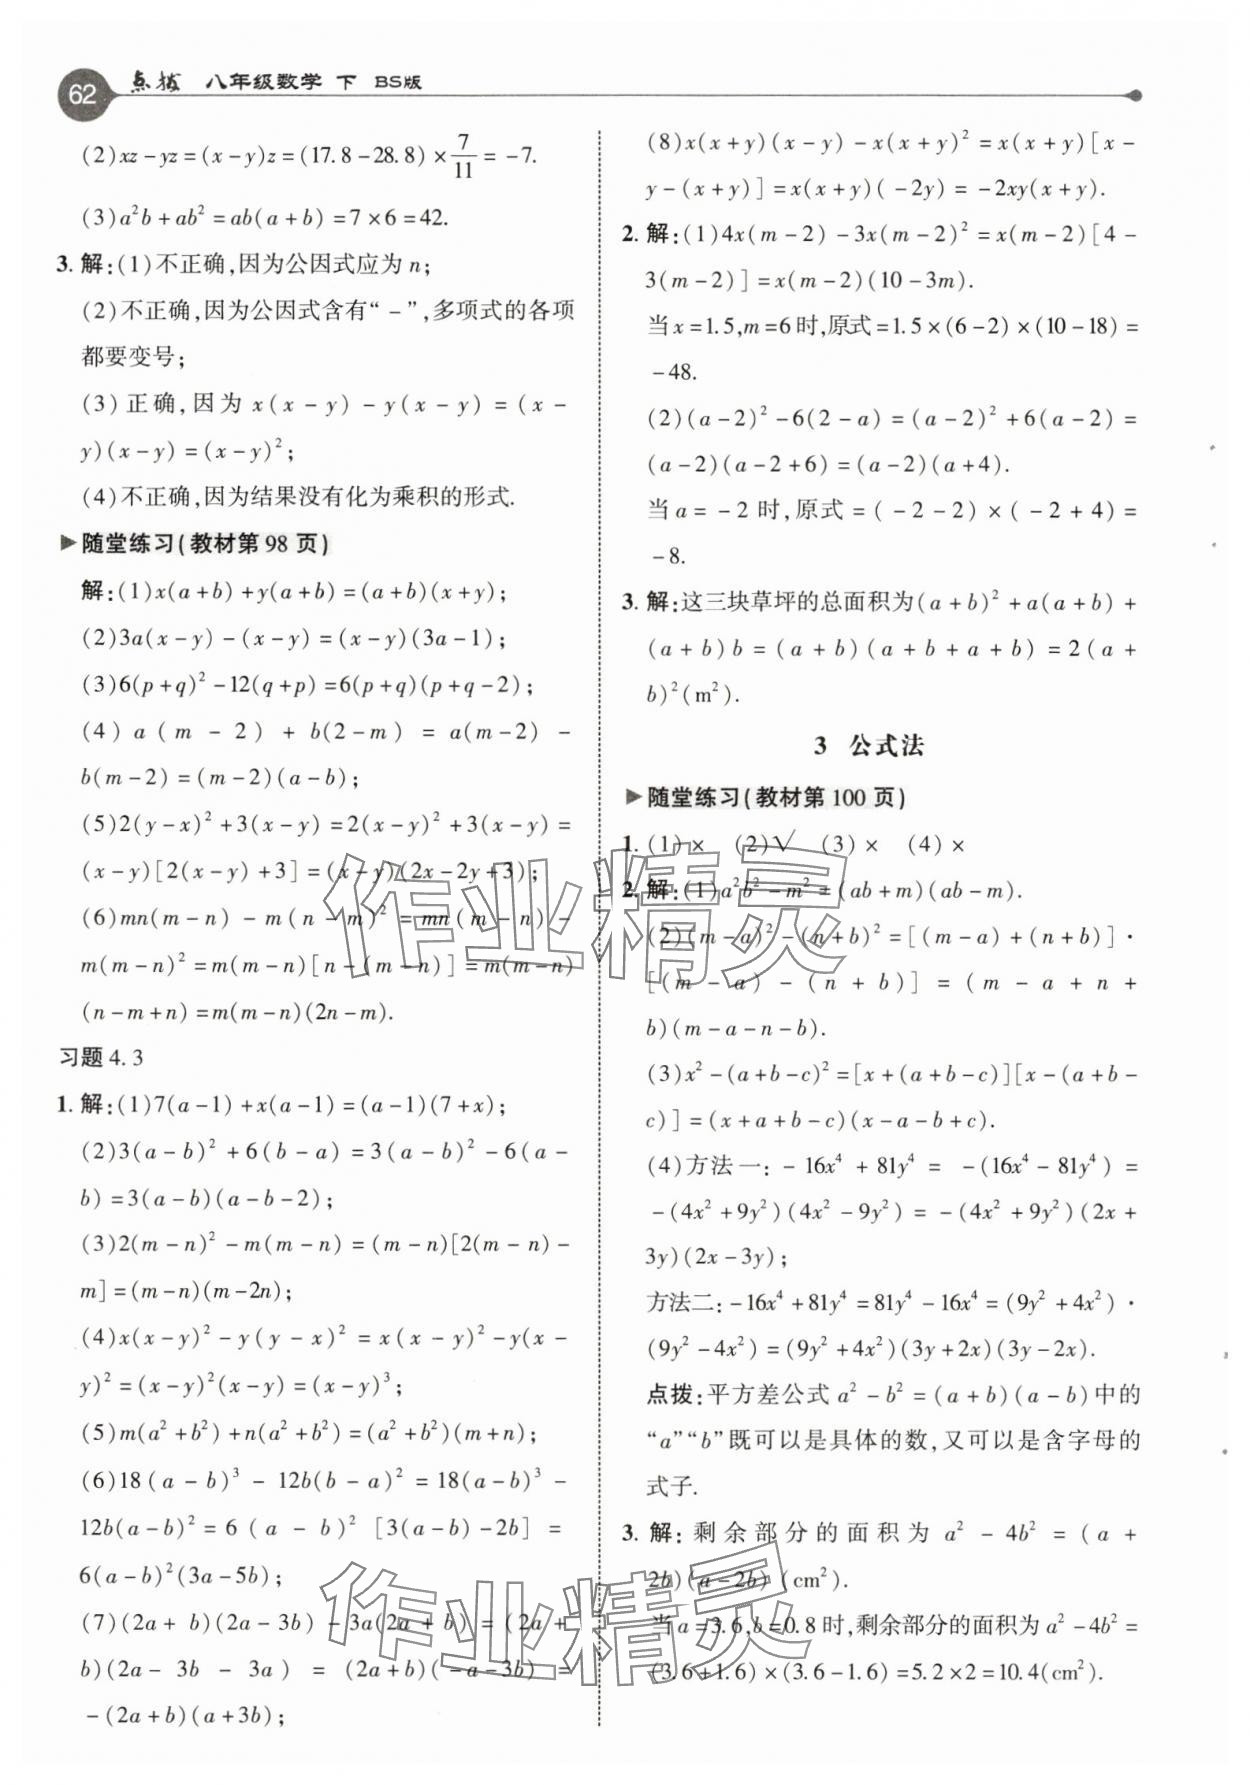 62 点拨 八年级数学 下 BS版
(2)xz-yz=(x-y)z=(17.8-28.8)×7/11=-7.
(3)a²b+ab²=ab(a+b)=7×6=42.
3. 解:(1)不正确,因为公因式应为n;
(2)不正确,因为公因式含有“-”,多项式的各项
都要变号;
(3)正确,因为x(x-y)-y(x-y)=(x-
y)(x-y)=(x-y)²;
(4)不正确,因为结果没有化为乘积的形式.
▶随堂练习(教材第98页)
解:(1)x(a+b)+y(a+b)=(a+b)(x+y);
(2)3a(x-y)-(x-y)=(x-y)(3a-1);
(3)6(p+q)²-12(q+p)=6(p+q)(p+q-2);
(4)a(m-2)+b(2-m)=a(m-2)-
b(m-2)=(m-2)(a-b);
(5)2(y-x)²+3(x-y)=2(x-y)²+3(x-y)=
(x-y)[2(x-y)+3]=(x-y)(2x-2y+3);
(6)mn(m-n)-m(n-m)²=mn(m-n)-
m(m-n)²=m(m-n)[n-(m-n)]=m(m-n)
(n-m+n)=m(m-n)(2n-m).
习题4.3
1. 解:(1)7(a-1)+x(a-1)=(a-1)(7+x);
(2)3(a-b)²+6(b-a)=3(a-b)²-6(a-
b)=3(a-b)(a-b-2);
(3)2(m-n)²-m(m-n)=(m-n)[2(m-n)-
m]=(m-n)(m-2n);
(4)x(x-y)²-y(y-x)²=x(x-y)²-y(x-
y)²=(x-y)²(x-y)=(x-y)³;
(5)m(a²+b²)+n(a²+b²)=(a²+b²)(m+n);
(6)18(a-b)³-12b(b-a)²=18(a-b)³-
12b(a-b)²=6(a-b)²[3(a-b)-2b]=
6(a-b)²(3a-5b);
(7)(2a+b)(2a-3b)-3a(2a+b)=(2a+
b)(2a-3b-3a)=(2a+b)(-a-3b)=
-(2a+b)(a+3b);
(8)x(x+y)(x-y)-x(x+y)²=x(x+y)[x-
y-(x+y)]=x(x+y)(-2y)=-2xy(x+y).
2. 解:(1)4x(m-2)-3x(m-2)²=x(m-2)[4-
3(m-2)]=x(m-2)(10-3m).
当x=1.5,m=6时,原式=1.5×(6-2)×(10-18)=
-48.
(2)(a-2)²-6(2-a)=(a-2)²+6(a-2)=
(a-2)(a-2+6)=(a-2)(a+4).
当a=-2时,原式=(-2-2)×(-2+4)=
-8.
3. 解:这三块草坪的总面积为(a+b)²+a(a+b)+
(a+b)b=(a+b)(a+b+a+b)=2(a+
b)²(m²).
3 公式法
▶随堂练习(教材第100页)
1. (1)× (2)√ (3)× (4)×
2. 解:(1)a²b²-m²=(ab+m)(ab-m).
(2)(m-a)²-(n+b)²=[(m-a)+(n+b)]·
[(m-a)-(n+b)]=(m-a+n+
b)(m-a-n-b).
(3)x²-(a+b-c)²=[x+(a+b-c)][x-(a+b-
c)]=(x+a+b-c)(x-a-b+c).
(4)方法一:-16x⁴+81y⁴=-(16x⁴-81y⁴)=
-(4x²+9y²)(4x²-9y²)=-(4x²+9y²)(2x+
3y)(2x-3y);
方法二:-16x⁴+81y⁴=81y⁴-16x⁴=(9y²+4x²)·
(9y²-4x²)=(9y²+4x²)(3y+2x)(3y-2x).
点拨:平方差公式a²-b²=(a+b)(a-b)中的
“a”“b”既可以是具体的数,又可以是含字母的
式子.
3. 解:剩余部分的面积为a²-4b²=(a+
2b)(a-2b)(cm²).
当a=3.6,b=0.8时,剩余部分的面积为a²-4b²=
(3.6+1.6)×(3.6-1.6)=5.2×2=10.4(cm²).
作业精灵
作业精灵